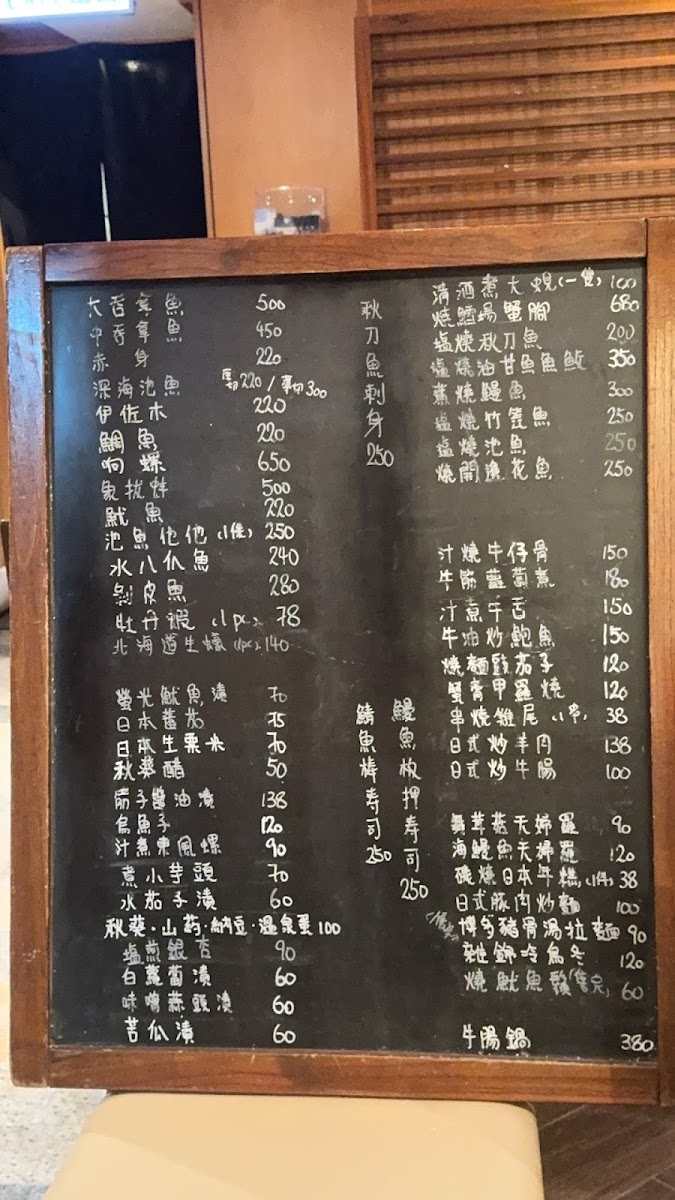 大吞拿魚 500
中吞拿魚 450
赤身 220
深海池魚 厚切220 / 薄切300
伊佐木 220
鯛魚 220
响螺 650
象拔蚌 500
魷魚 220
池魚他他 (1條) 250
水八爪魚 240
剝皮魚 280
牡丹蝦 (1pc) 78
北海道生蠔 (1pc) 140
螢光魷魚漬 70
日本蕃茄 75
日本生粟米 70
秋葵醋 50
筋子醬油漬 138
烏魚子 120
汁煮東風螺 90
煮小芋頭 70
水茄子漬 60
秋葵·山药·納豆·溫泉蛋 100
塩煎銀杏 90
白蘿蔔漬 60
味噌蒜頭漬 60
苦瓜漬 60
秋刀魚刺身 250
鯖魚棒寿司 250
鰻魚板押寿司 250
清酒煮大蜆 (一隻) 100
燒鱈場蟹腳 680
塩燒秋刀魚 200
塩燒油甘魚魚鮫 350
煮燒鰻魚 300
塩燒竹筴魚 250
塩燒池魚 250
燒開邊花魚 250
汁燒牛仔骨 150
牛筋蘿蔔煮 180
汁煮牛舌 150
牛油炒鮑魚 150
燒麵豉茄子 120
蟹膏甲羅燒 120
串燒雞尾 (1串) 38
日式炒羊肉 138
日式炒牛腸 100
舞茸菇天婦羅 90
海鰻魚天婦羅 120
磯燒日本年糕 (1件) 38
日式豚肉炒麵 100
博多豬骨湯拉麵 90
雜錦冷烏冬 120
燒魷魚鬚 (售完) 60
牛腸鍋 380